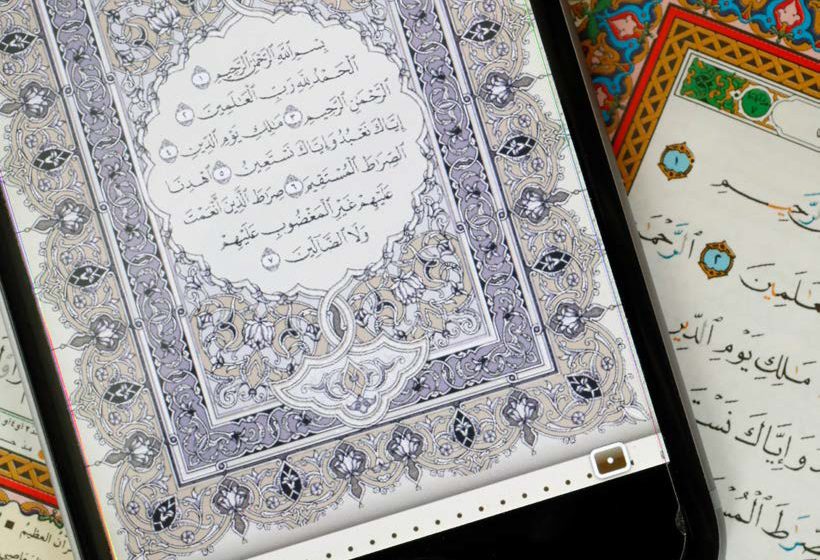 بِسْمِ ٱللَّهِ ٱلرَّحْمَٰنِ ٱلرَّحِيمِ ١
ٱلْحَمْدُ لِلَّهِ رَبِّ ٱلْعَٰلَمِينَ ٢
ٱلرَّحْمَٰنِ ٱلرَّحِيمِ ٣ مَٰلِكِ يَوْمِ ٱلدِّينِ ٤
إِيَّاكَ نَعْبُدُ وَإِيَّاكَ نَسْتَعِينُ ٥ ٱهْدِنَا
ٱلصِّرَٰطَ ٱلْمُسْتَقِيمَ ٦ صِرَٰطَ ٱلَّذِينَ أَنْعَمْتَ
عَلَيْهِمْ غَيْرِ ٱلْمَغْضُوبِ عَلَيْهِمْ
وَلَا ٱلضَّآلِّينَ ٧
١
ٱلْعَٰلَمِينَ ٢
مَٰلِكِ يَوْمِ ٱلدِّينِ
وَإِيَّاكَ